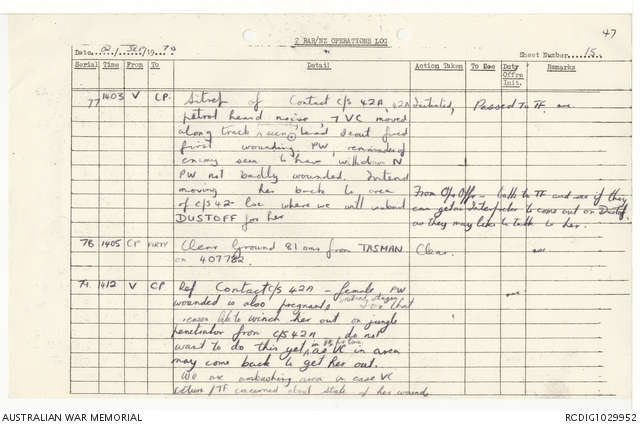 47
2 RAR/NZ OPERATIONS LOG
Date 2 Sep 1970 Sheet Number 15
Serial Time From To Detail Action Taken To Dec Duty Offrs Init. Remarks
77 1403 V CP. Sitrep of Contact C/S 42A, 42A Initiated, Passed to TF
patrol heard noise, 7 VC moved
along track Lead Scout fired
first wounding PW, remainder of
enemy seen to have withdrawn N
PW not badly wounded. Intend
moving her back to area From Ops Offr - talk to TF and see if they
of C/S 42 - loc where we will winch can get an Interpreter to come out on Dustoff
DUSTOFF for her as they may like to talk to her.
78 1405 CP Clear Ground 81 oms from TASMAN Clear.
on 407782.
79. 1412 V CP Ref Contact C/S 42A - female PW
wounded is also pregnant initial stages for that
reason like to winch her out on jungle
penetrator from C/S 42A do not
want to do this yet as VC in area
may come back to get her out.
We are ambushing area in case VC
return / TF concerned about state of her wound
AUSTRALIAN WAR MEMORIAL RCDIG1029952